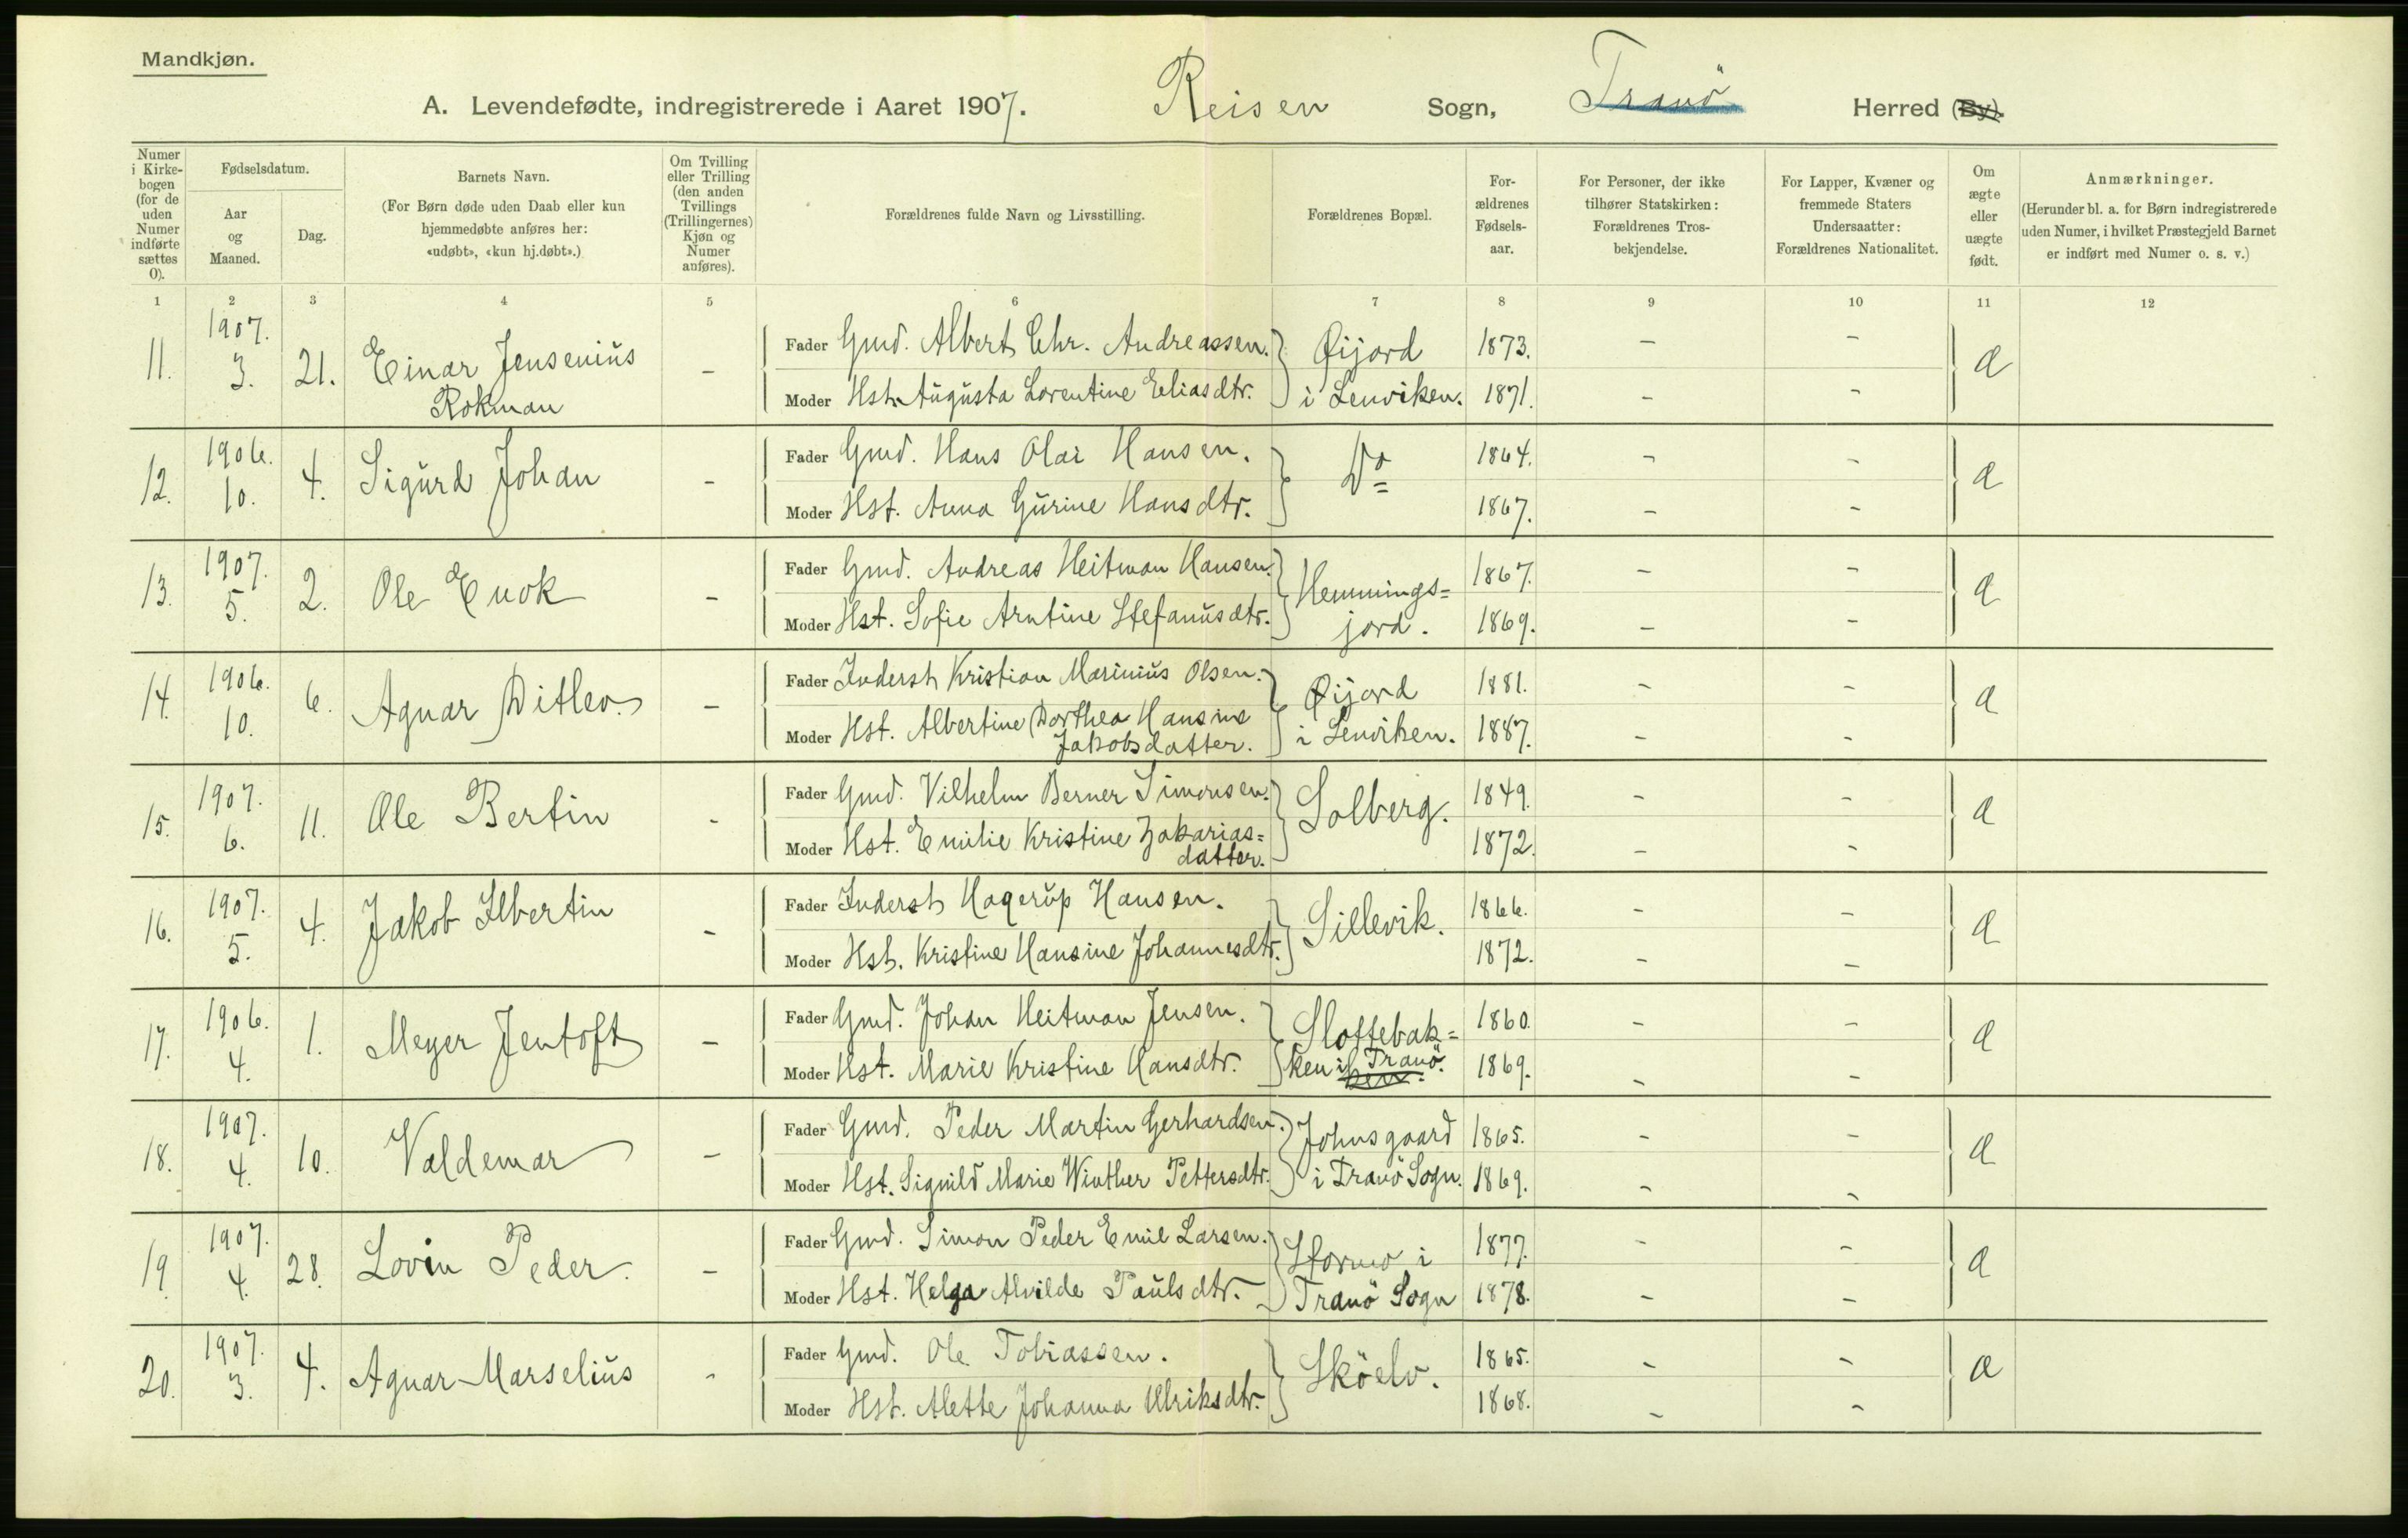 Mandkjøn.
A. Levendefødte, indregistrerede i Aaret 1907. Reisen Sogn, Tranö Herred (By).
Numer i Kirkebogen (for de uden Numer indførte sættes 0).
Fødselsdatum.
Aar og Maaned.
Dag.
Barnets Navn.
(For Børn døde uden Daab eller kun hjemmedøbte anføres her: «udøbt», «kun hj.døbt».)
Om Tvilling eller Trilling (den anden Tvillings (Trillingernes) Kjøn og Numer anføres).
Forældrenes fulde Navn og Livsstilling.
Forældrenes Bopæl.
For-ældrenes Fødsels-aar.
For Personer, der ikke tilhører Statskirken: Forældrenes Tros-bekjendelse.
For Lapper, Kvæner og fremmede Staters Undersaatter: Forældrenes Nationalitet.
Om ægte eller uægte født.
Anmærkninger.
(Herunder bl. a. for Børn indregistrerede uden Numer, i hvilket Præstegjeld Barnet er indført med Numer o. s. v.)
1 2 3 4 5 6 7 8 9 10 11 12
11. 1907. 3. 21. Einar Jensenius Rokman -
Fader Gmd. Albert Chr. Andreassen. Øijord 1873. - - a
Moder Hst. Augusta Lorentine Eliasdtr. i Lenviken. 1871. - -
12. 1906. 10. 4. Sigurd Johan -
Fader Gmd. Hans Olai Hansen. Do 1864. - - a
Moder Hst. Anna Gurine Hansdtr. 1867. - -
13. 1907. 5. 2. Ole Enok -
Fader Gmd. Andreas Heitman Hansen. Hemmings= 1867. - - a
Moder Hst. Sofie Arntine Stefanusdtr. jord. 1869. - -
14. 1906. 10. 6. Agnar Ditlev. -
Fader Inderst Kristian Marinius Olsen. Øijord 1881. - - a
Moder Hst. Albertine Dorthea Hansine Jakobsdatter. i Lenviken. 1887. - -
15. 1907. 6. 11. Ole Bertin -
Fader Gmd. Vilhelm Berner Simonsen. Solberg. 1849. - - a
Moder Hst. Emilie Kristine Zakarias= datter. 1872. - -
16. 1907. 5. 4. Jakob Ilbertin -
Fader Inderst Hagerup Hansen. Sillevik. 1866. - - a
Moder Hst. Kristine Hansine Johannesdtr. 1872. - -
17. 1906. 4. 1. Meyer Jentoft -
Fader Gmd. Johan Heitman Jensen. Slottebak= 1860. - - a
Moder Hst. Marie Kristine Hansdtr. ken i Tranö. 1869. - -
18. 1907. 4. 10. Valdemar -
Fader Gmd. Peder Martin Gerhardsen. Johnsgaard 1865. - - a
Moder Hst. Signild Marie Winther Pettersdtr. i Tranö Sogn. 1869. - -
19 1907. 4. 28. Lovin Peder. -
Fader Gmd. Simon Peder Emil Larsen. Stormo i 1877. - - a
Moder Hst. Helga Alvilde Paulsdtr. Tranö Sogn 1878. - -
20. 1907. 3. 4. Agnar Marselius -
Fader Gmd. Ole Tobiassen. Sköelv. 1865. - - a
Moder Hst. Alette Johanna Ulriksdtr. 1868. - -